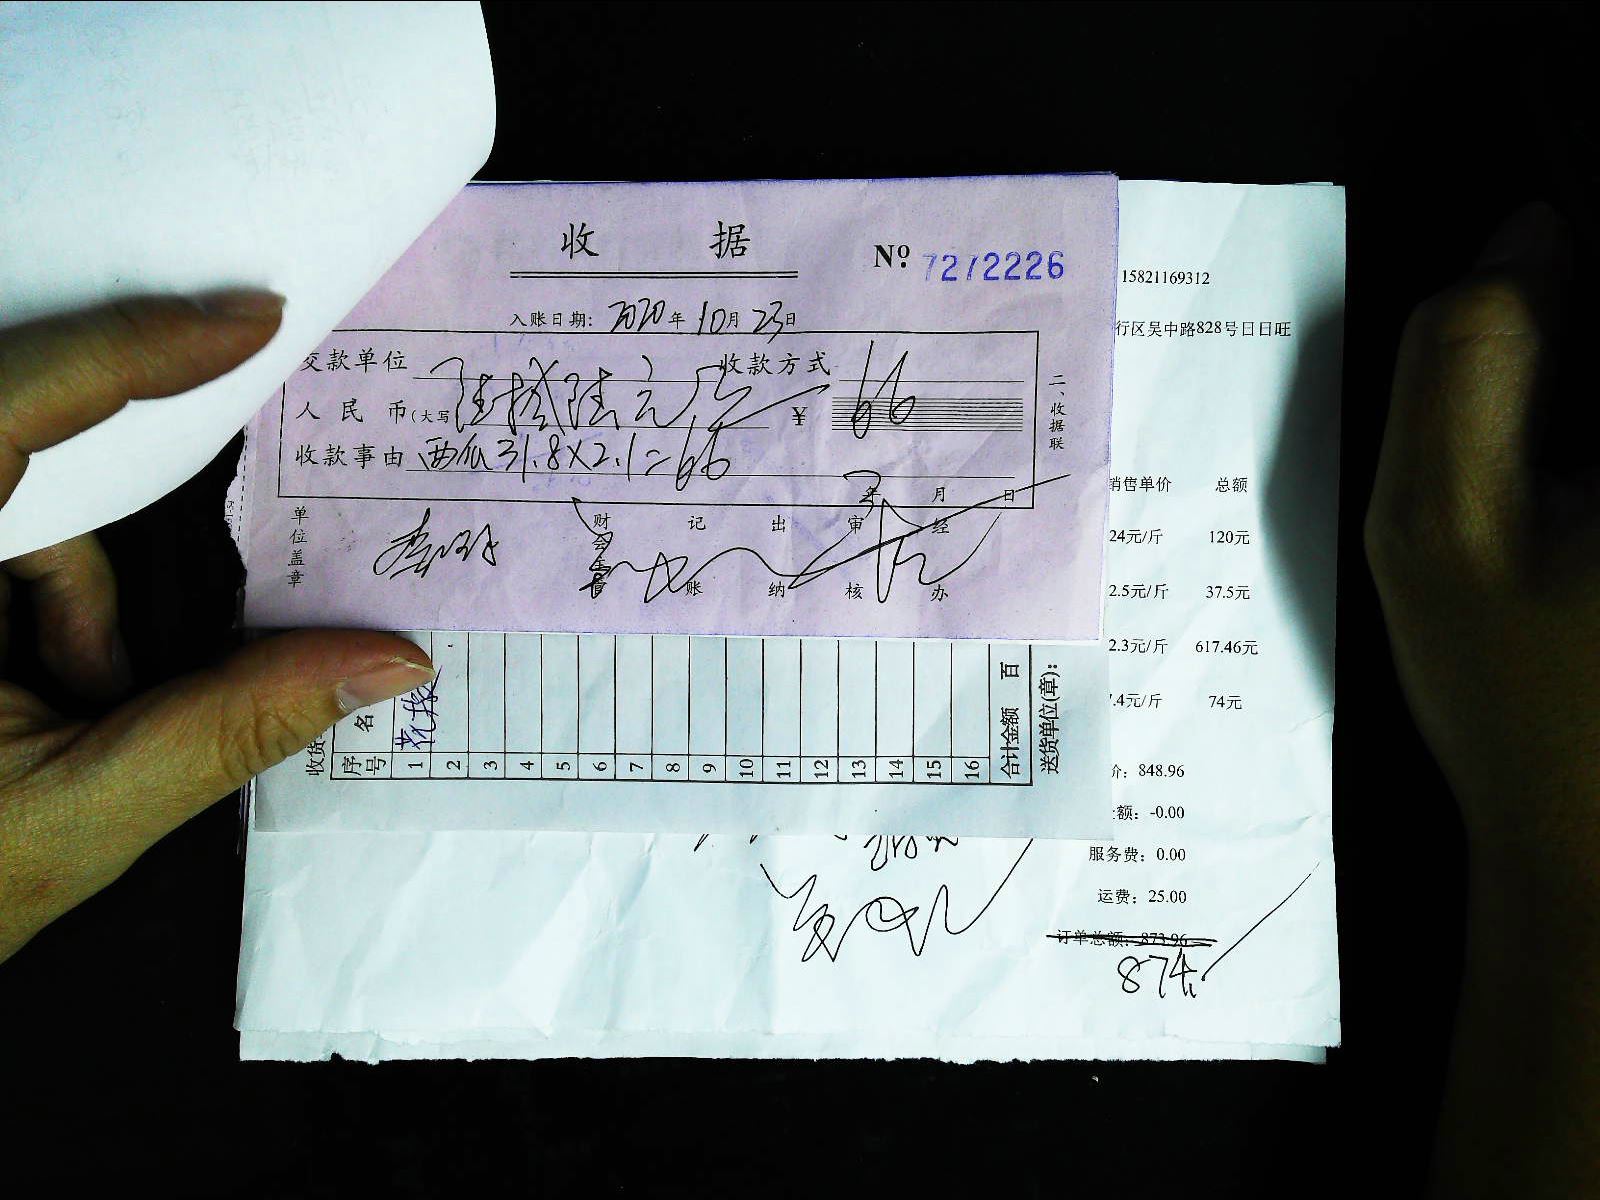 收 据
Nº 7212226
入账日期: 2020年10月23日
交款单位 收款方式
人民币(大写 陆拾陆元 ¥ 66
收款事由 西瓜31.8X2.1=66
年 月 日
二、收据联
单位盖章
财会主管 记账 出纳 审核 经办
15821169312
行区吴中路828号日日旺
销售单价 总额
24元/斤 120元
2.5元/斤 37.5元
2.3元/斤 617.46元
7.4元/斤 74元
价: 848.96
额: -0.00
服务费: 0.00
运费: 25.00
订单总额: 873.96
874
收货
序号 名
1
2
3
4
5
6
7
8
9
10
11
12
13
14
15
16
合计金额 百
送货单位(章):